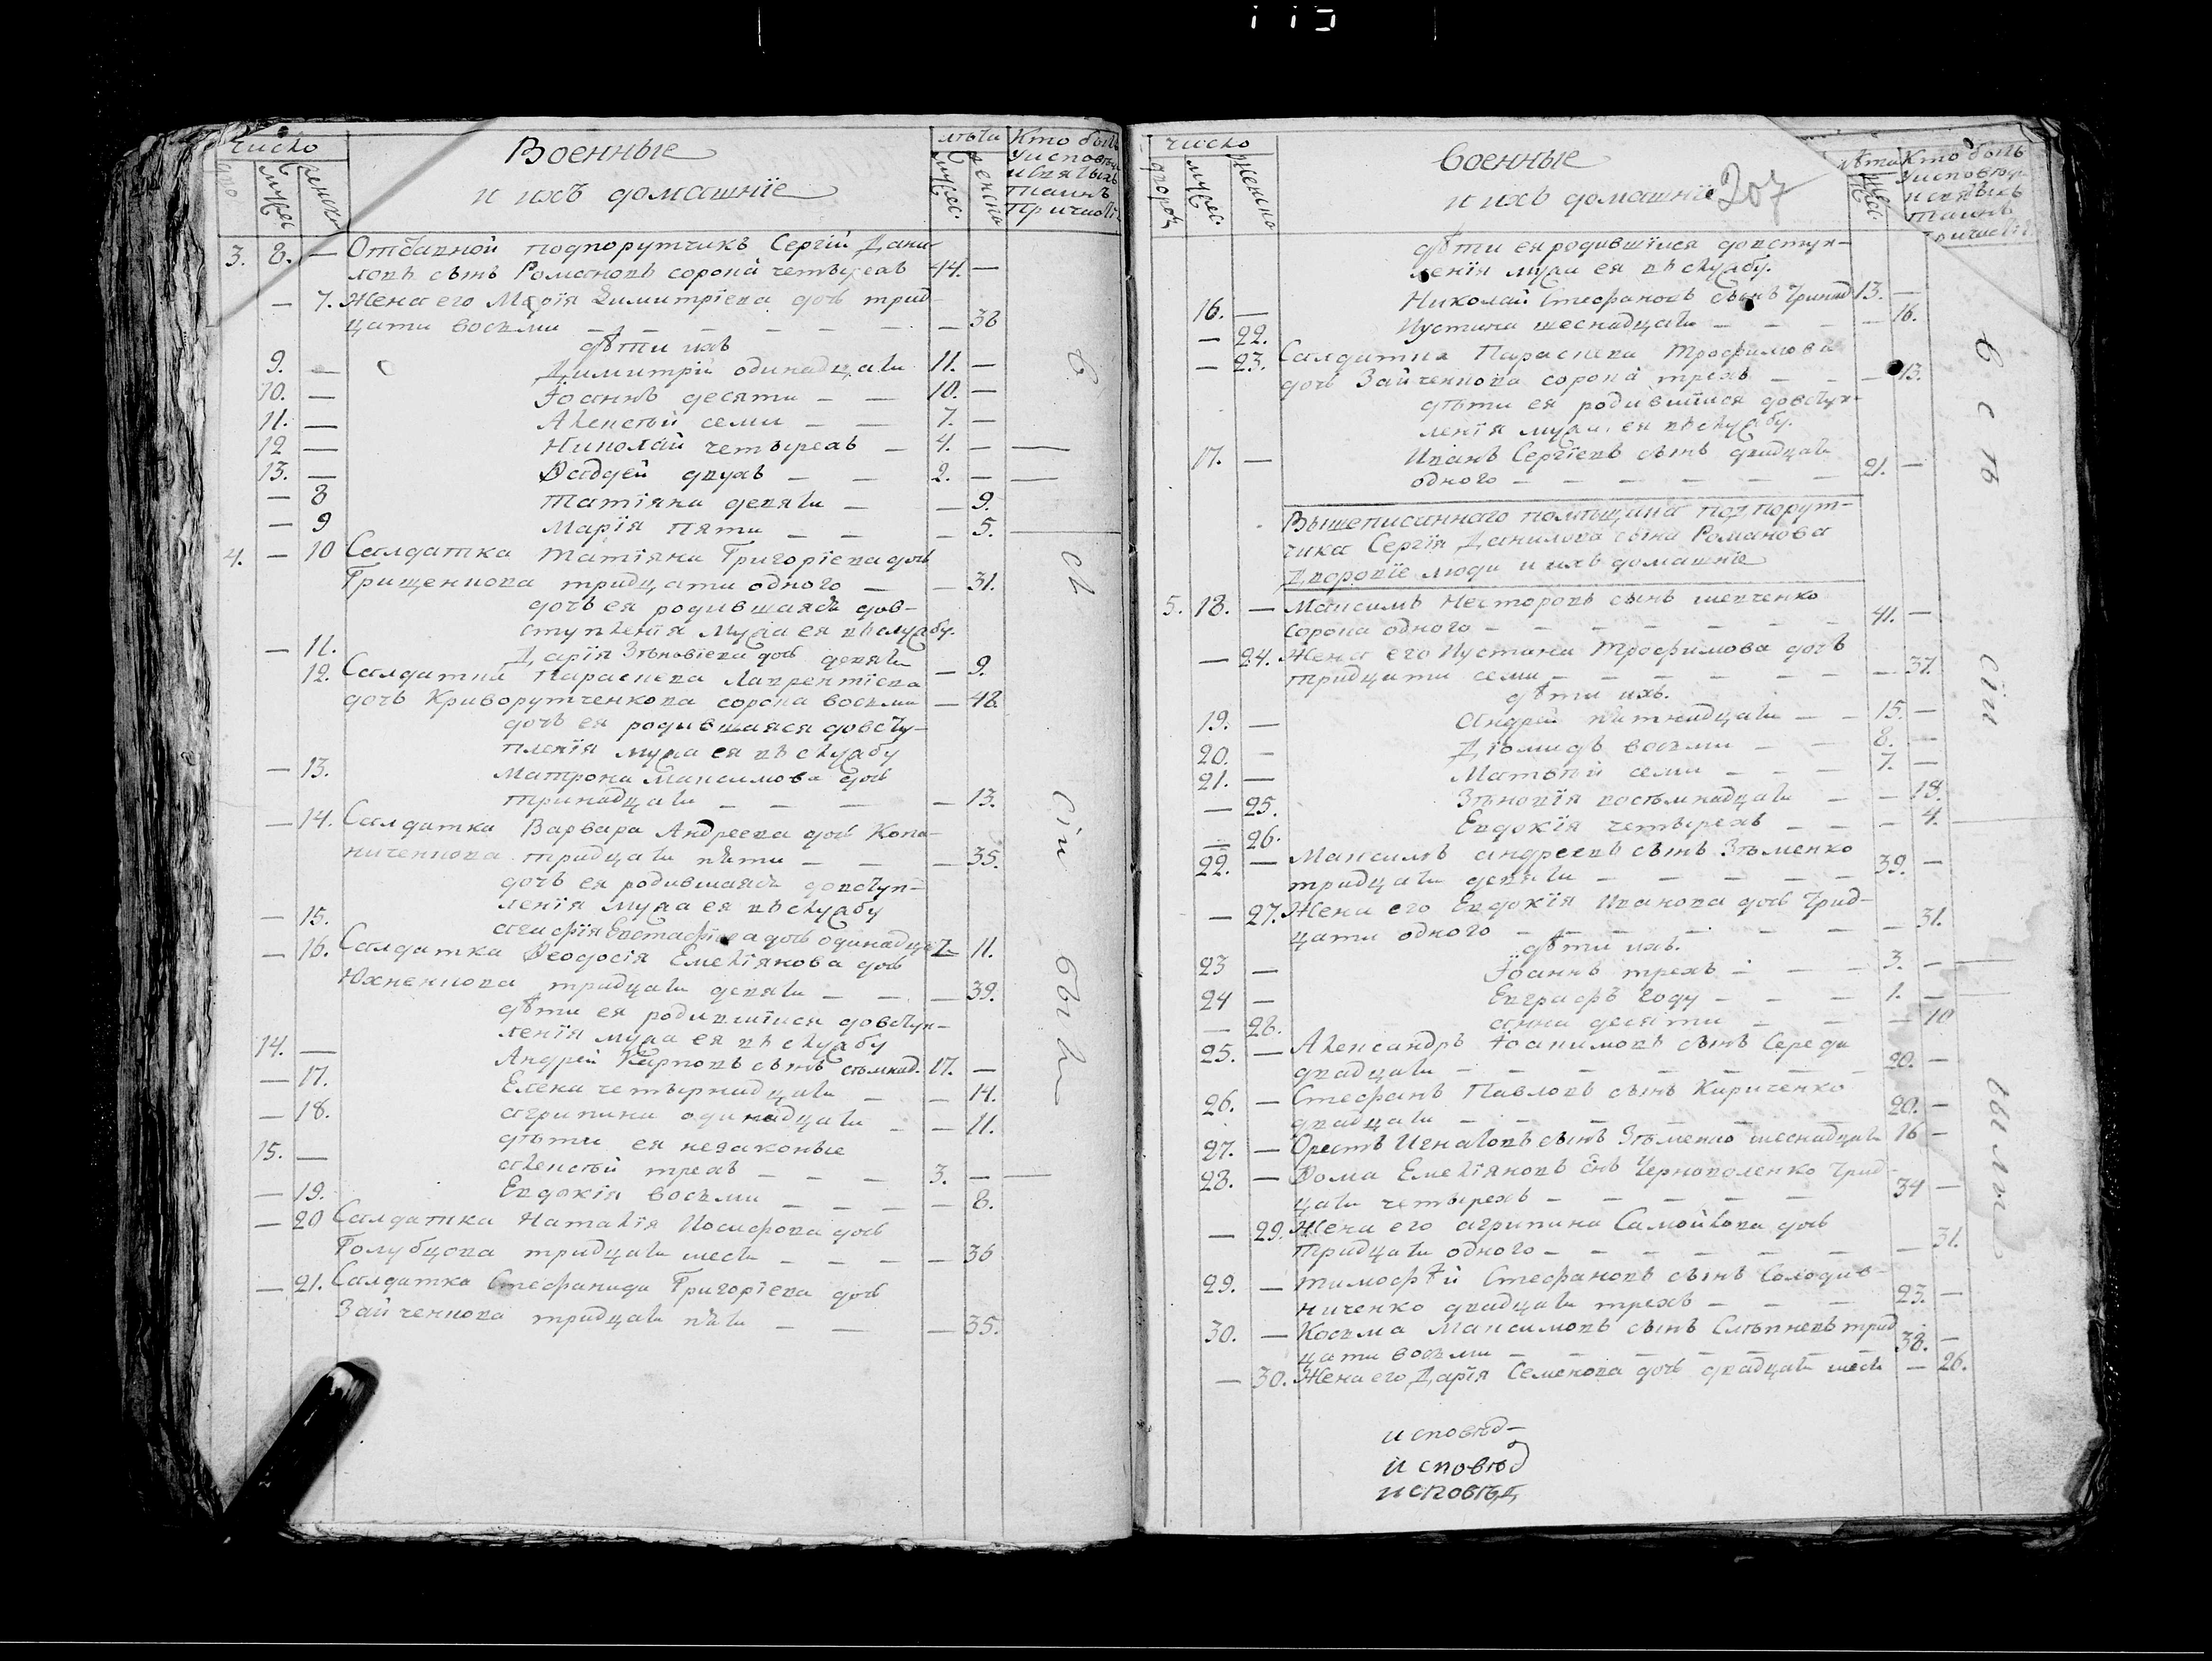 число
дво
мужес
женска
Военные
и ихъ домашніе
лѣта
мужес.
женска
Кто былъ
У исповѣди
и святыхъ
таинъ
причастія
3. 8. — Отставной подпорутчикъ Сергій Дани-
ловъ сынъ Романовъ сорока четырехъ 44. —
— 7. Жена его Марія Димитріева дочь трид-
цати восьми — — — — — — — 38
дѣти ихъ
9. — Димитрій одинадцати 11. —
10. — Іоаннъ десяти — — 10. —
11. — Алексѣй семи — — 7. —
12 — Николай четырехъ — 4. — —
13. — Ѳаддей двухъ — — 2. — —
— 8 Татіяна девяти — — 9.
— 9 Марія пяти — — — 5. —
4. — 10 Салдатка Татіяна Григоріева дочь
Грищенкова тридцати одного — — 31.
дочь ея родившаяся дов-
ступленія мужа ея въ службу.
— 11. Дарія Зѣновіева дочь девяти — 9.
12. Салдатка Параскева Лаврентіева
дочь Криворутченкова сорока восьми — 48
дочь ея родившаяся довсту-
пленія мужа ея въ службу
— 13. Матрона Максимова дочь
тринадцати — — — — 13.
— 14. Салдатка Варвара Андреева дочь Копа-
ниченкова тридцати пяти — — — 35.
дочь ея родившаяся довступ-
ленія мужа ея въ службу
— 15. Агафія Евстафіева дочь одинадца — 11.
— 16. Салдатка Ѳеодосія Емеліянова дочь
Юхненкова тридцати девяти — — — 39.
дѣти ея родившіися довступ-
ленія мужа ея въ службу
14. — Андрей Карповъ сынъ семнад. 17. —
— 17. Елена четырнадцати — — 14.
— 18. Агрипина одинадцати — — 11.
дѣти ея незаконые
15. — Алексѣй трехъ — — — 3. — —
— 19. Евдокія восьми — — — — 8.
— 20 Салдатка Наталія Иосифова дочь
Голубцова тридцати шести — — — — 36
— 21. Салдатка Стефанида Григоріева дочь
Зайченкова тридцати пяти — — — 35.
всѣ сіи были
число
дворов
мужес.
женска
Военные
и ихъ домашніе 207
лѣта
мужес.
Кто былъ
У исповѣди
и святыхъ
таинъ
причастія
дѣти ея родившіися довступ-
ленія мужа ея въ службу.
16. — Николай Стефановъ сынъ тринад 13. —
— 22. Иустина шеснадцати — — — — 16.
— 23. Салдатка Параскева Трофимова
дочь Зайченкова сорока трехъ — — — 43.
дѣти ея родившіися довступ-
ленія мужа ея въ службу.
17. — Иванъ Сергіевъ сынъ двадцати
одного — — — — — — 21. —
Вышеписаннаго помѣщика подпорут-
чика Сергія Данилова сына Романова
Дворовіе люди и ихъ домашніе
5. 18. — Максимъ Несторовъ сынъ Шевченко
сорока одного — — — — — — 41. —
— 24. Жена его Иустина Трофимова дочь
тридцати семи — — — — — — 37.
дѣти ихъ.
19. — Андрей пятнадцати — — 15. —
20. — Діомидъ восьми — — 8. —
21. — Матвѣй семи — — — 7. —
— 25. Зѣновія восемнадцати — — 18.
— 26. Евдокія четырехъ — — — 4. —
22. — Максимъ Андреевъ сынъ Зѣменко
тридцати девяти — — — — — 39. —
— 27. Жена его Евдокія Иванова дочь трид-
цати одного — — — — — — 31.
дѣти ихъ.
23 — Іоаннъ трехъ — — — 3. — —
24 — Евграфъ году — — — 1. — —
— 28. Анна десяти — — — 10
25. — Александръ Іоакимовъ сынъ Середа
двадцати — — — — — — — 20. —
26. — Стефанъ Павловъ сынъ Кириченко
двадцати — — — — — — — 20. —
27. — Орестъ Игнатовъ сынъ Зѣменко шеснадцати 16 —
28. — Ѳома Емеліяновъ снъ Черноволенко трид-
цати четырехъ — — — — — 34 —
— 29. Жена его Агрипина Самойлова дочь
тридцати одного — — — — — — — 31.
29. — Тимофѣй Стефановъ сынъ Солодов-
ниченко двадцати трехъ — — — 23. —
30. — Косьма Максимовъ сынъ Слѣпневъ трид
цати восьми — — — — — — 38. —
— 30. Жена его Дарія Семенова дочь двадцати шести — 26.
всѣ сіи были
исповѣд-
исповѣд
исповѣд